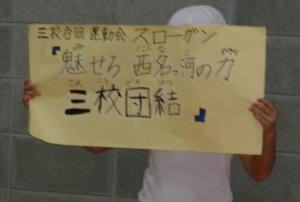 三校合同運動会 スローガン
『魅せろ 西名っ河の力
三校団結』